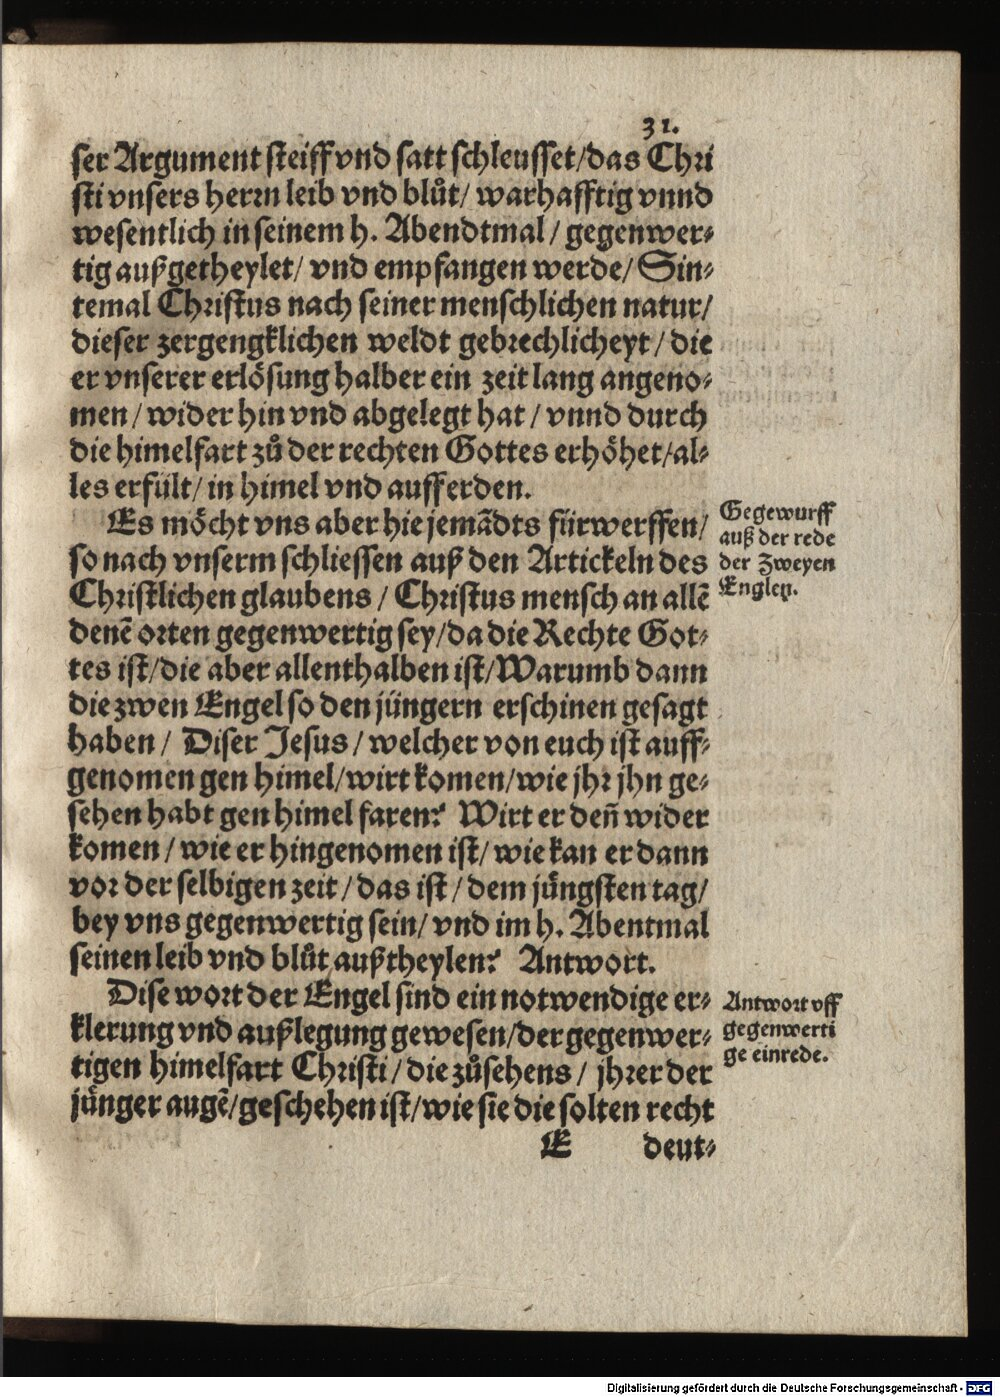 31.
ser Argument steiff vnd satt schleusset/das Chri
sti vnsers herrn leib vnd blůt/ warhafftig vnnd
wesentlich in seinem h. Abendtmal / gegenwer⸗
tig außgetheylet/ vnd empfangen werde/ Sin⸗
temal Christus nach seiner menschlichen natur/
dieser zergengklichen weldt gebrechlicheyt / die
er vnserer erlösung halber ein zeit lang angeno⸗
men / wider hin vnd abgelegt hat / vnnd durch
die himelfart zů der rechten Gottes erhöhet/al⸗
les erfült/ in himel vnd auff erden.
Es möcht vns aber hie jemādts fürwerffen/
so nach vnserm schliessen auß den Artickeln des
Christlichen glaubens / Christus mensch an allē
denē orten gegenwertig sey/da die Rechte Got⸗
tes ist/die aber allenthalben ist/Warumb dann
die zwen Engel so den jüngern erschinen gesagt
haben / Diser Jesus / welcher von euch ist auff⸗
genomen gen himel/wirt komen/wie jhr jhn ge⸗
sehen habt gen himel faren? Wirt er deñ wider
komen / wie er hingenomen ist/ wie kan er dann
vor der selbigen zeit / das ist / dem jüngsten tag/
bey vns gegenwertig sein/ vnd im h. Abentmal
seinen leib vnd blůt außtheylen? Antwort.
Dise wort der Engel sind ein notwendige er⸗
klerung vnd außlegung gewesen/der gegenwer⸗
tigen himelfart Christi / die zůsehens / jhrer der
jünger augē/geschehen ist/wie sie die solten recht
E deut⸗
Gegewurff
auß der rede
der Zweyen
Englen.
Antwort vff
gegenwerti
ge einrede.
Digitalisierung gefördert durch die Deutsche Forschungsgemeinschaft - DFG